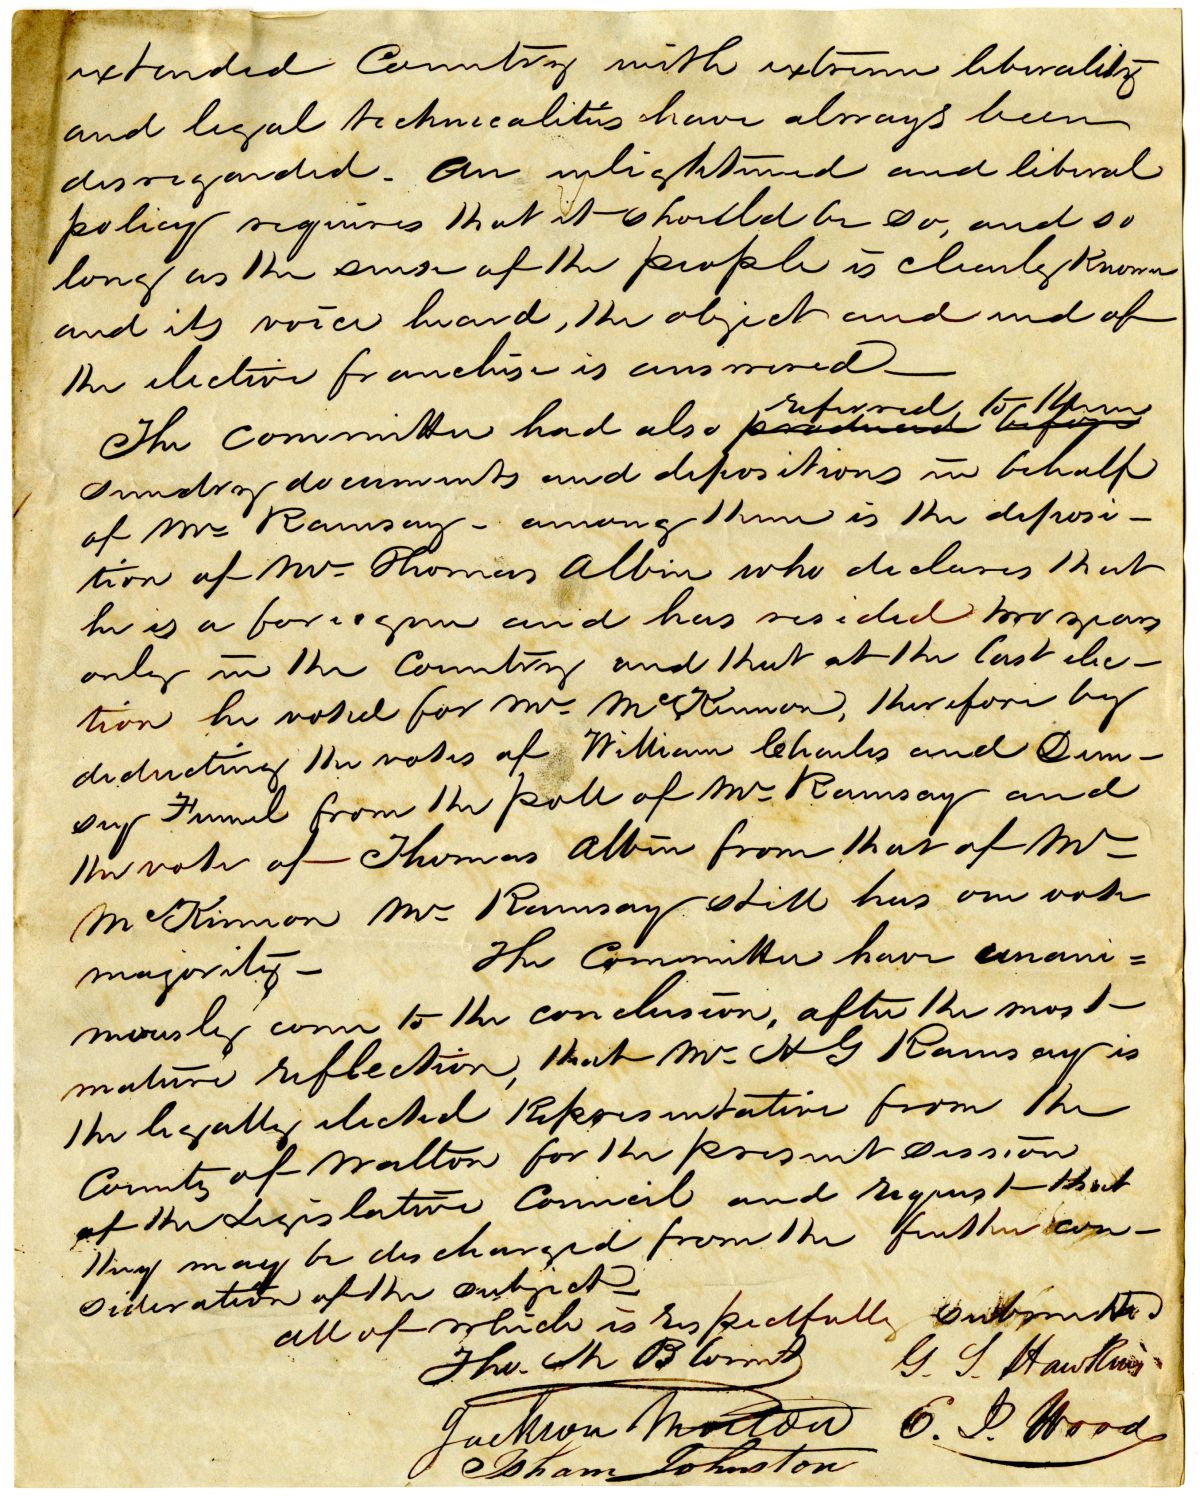 extended Country with extreme liberality
and legal technicalities have always been
disregarded. An enlightened and liberal
policy requires that it should be so, and so
long as the sense of the people is clearly known
and its voice heard, the object and end of
the elective franchise is answered —
referred to them
The Committee had also produced before
sundry documents and depositions in behalf
of Mr Ramsay - among them is the deposi-
tion of Mr Thomas Albin who declares that
he is a foreigner and has resided two years
only in the Country and that at the last elec-
tion he voted for Mr McKinnon, therefore by
deducting the votes of William Charles and
from the poll of Mr Ramsay and
the vote of Thomas Albin from that of Mr
McKinnon Mr Ramsay still has one vote
majority - The Committee have unani=
mously come to the conclusion, after the most
mature reflection, that Mr H G Ramsay is
the legally elected Representative from the
County of Walton for the present session
of the Legislative Council and request that
they may be discharged from the further con-
sideration of the subject
all of which is respectfully submitted
Tho. M Blount G. S. Hawkins
Jackson Morton E. J. Wood
Isham Johnston